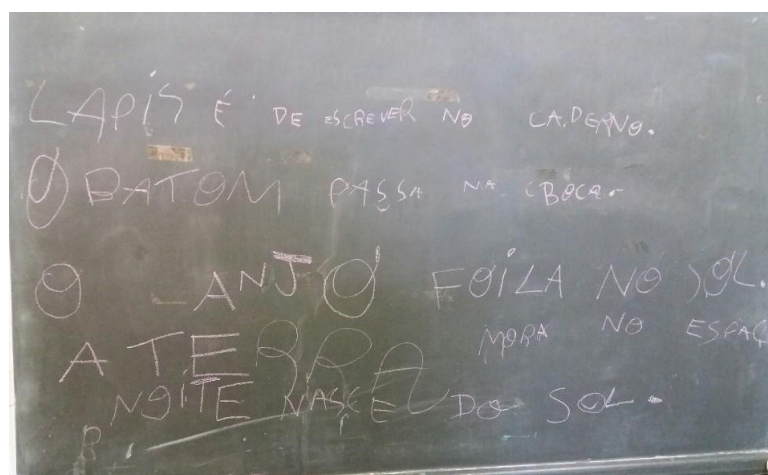 LAPIS É DE ESCREVER NO CADERNO.
O BATOM PASSA NA BOCA.
O ANJO FOI LA NO SOL.
A TERRA MORA NO ESPAÇ
NOITE NASCE DO SOL.